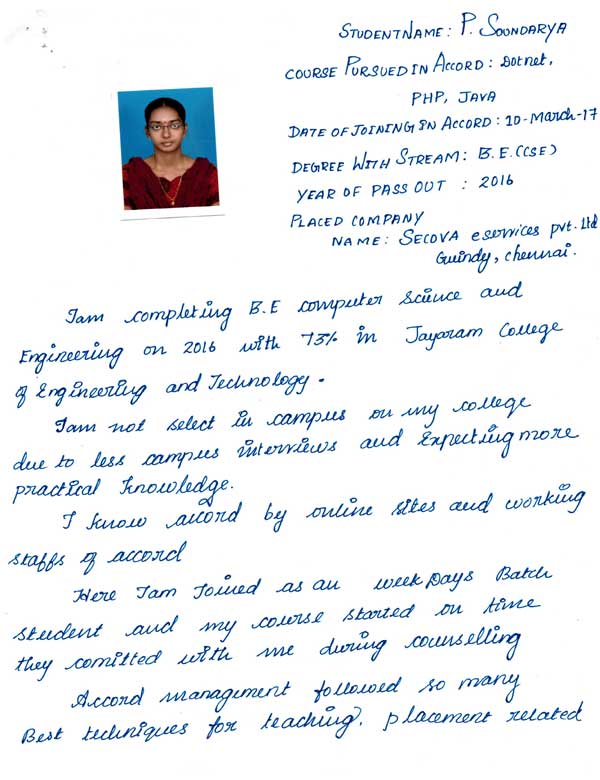 STUDENT NAME: P. SOUNDARYA
COURSE PURSUED IN ACCORD: Dotnet,
PHP, JAVA
DATE OF JOINING IN ACCORD: 10-March-17
DEGREE WITH STREAM: B.E.(CSE)
YEAR OF PASS OUT : 2016
PLACED COMPANY
NAME: SECOVA eservices pvt. Ltd
Guindy, chennai.
Iam completing B.E computer science and
Engineering on 2016 with 73% in Jayaram College
of Engineering and Technology.
Iam not select in campus on my college
due to less campus interviews and Expecting more
practical knowledge.
I know accord by online sites and working
staffs of accord
Here Iam Joined as an week Days Batch
student and my course started on time
they comitted with me during counselling
Accord management followed so many
Best techniques for teaching, placement related